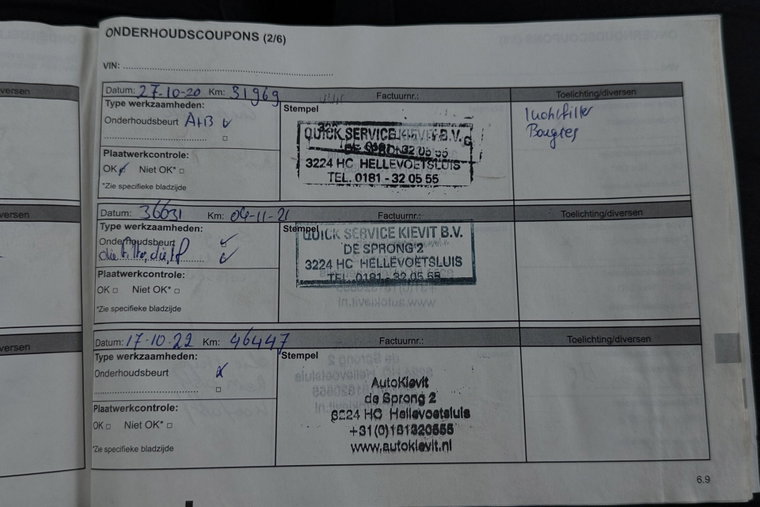 ONDERHOUDSCOUPONS (2/6)
VIN:
Datum: 27-10-20 Km: 31969 Factuurnr.: Toelichting/diversen
Type werkzaamheden:
Stempel
Onderhoudsbeurt A+B
Luchtfilter
Bougies
QUICK SERVICE KIEVIT B.V.
DE SPRONG 2
3224 HC HELLEVOETSLUIS
TEL. 0181 - 32 05 55
Plaatwerkcontrole:
OK Niet OK*
*Zie specifieke bladzijde
Datum: 36631 Km: 04-11-21 Factuurnr.: Toelichting/diversen
Type werkzaamheden:
Stempel
Onderhoudsbeurt
QUICK SERVICE KIEVIT B.V.
DE SPRONG 2
3224 HC HELLEVOETSLUIS
TEL. 0181 - 32 05 55
Plaatwerkcontrole:
OK Niet OK*
*Zie specifieke bladzijde
Datum: 17-10-22 Km: 46447 Factuurnr.: Toelichting/diversen
Type werkzaamheden:
Stempel
Onderhoudsbeurt
AutoKievit
de Sprong 2
3224 HC Hellevoetsluis
+31(0)181320555
www.autokievit.nl
Plaatwerkcontrole:
OK Niet OK*
*Zie specifieke bladzijde
6.9